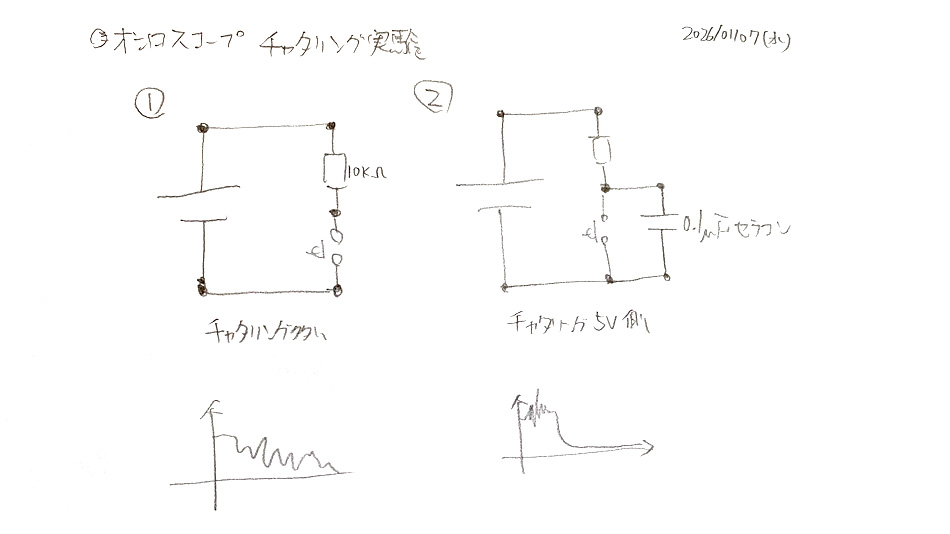 オシロスコープ チャタリング実験
2026/01/07(水)
①
②
10KΩ
0.1μF セラコン
チャタリング多い
チャタリング 5V側